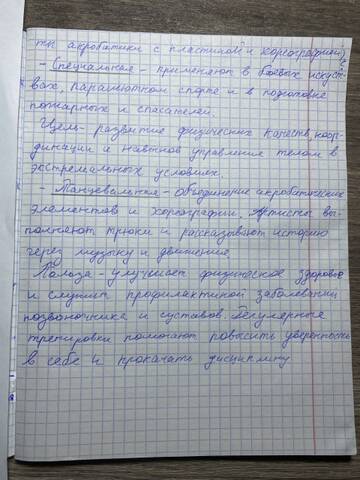 ти акробатики с пластикой и хореографией)
- Специальная - применяют в боевых искусст-
вах, парашютном спорте и в подготовке
пожарных и спасателей.
Цель - развитие физических качеств, коор-
динации и навыков управления телом в
экстремальных условиях.
- Танцевальная - Объединение акробатических
элементов и хореографии. Артисты вы-
полняют трюки и рассказывают историю
через музыку и движение.
Польза - улучшает физическое здоровье
и служит профилактикой заболеваний
позвоночника и суставов. Регулярные
тренировки помогают повысить уверенность
в себе и прокачать дисциплину